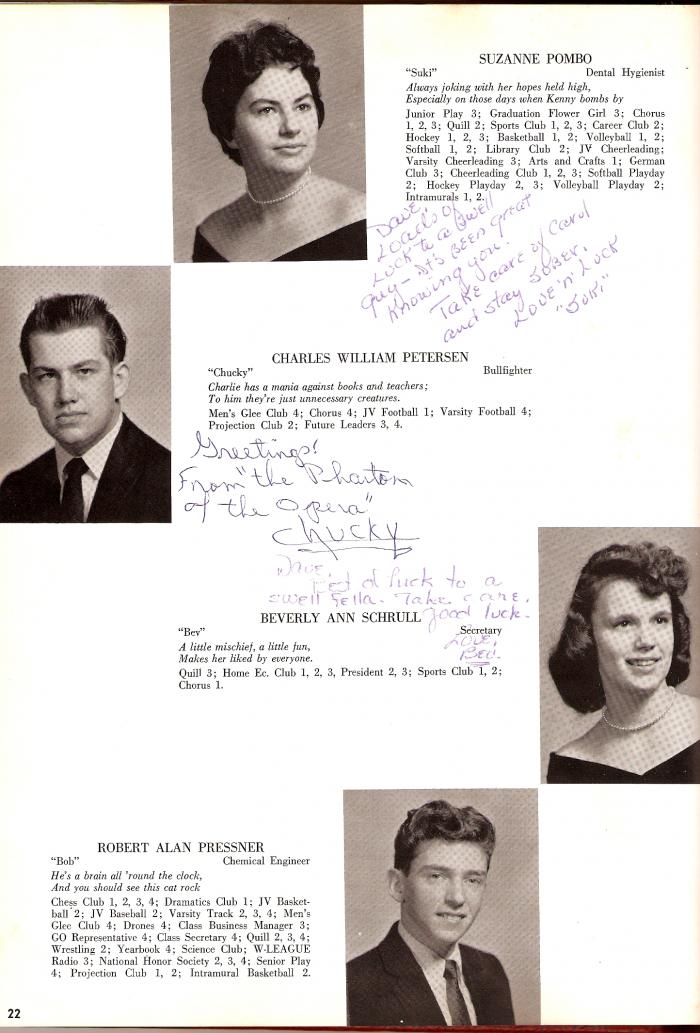 SUZANNE POMBO
"Suki" Dental Hygienist
Always joking with her hopes held high,
Especially on those days when Kenny bombs by
Junior Play 3; Graduation Flower Girl 3; Chorus
1, 2, 3; Quill 2; Sports Club 1, 2, 3; Career Club 2;
Hockey 1, 2, 3; Basketball 1, 2; Volleyball 1, 2;
Softball 1, 2; Library Club 2; JV Cheerleading;
Varsity Cheerleading 3; Arts and Crafts 1; German
Club 3; Cheerleading Club 1, 2, 3; Softball Playday
2; Hockey Playday 2, 3; Volleyball Playday 2;
Intramurals 1, 2.
Dave,
Loads of
Luck to a swell
guy - It's been great
Knowing you.
Take care of Carol
and stay SOBER.
LOVE 'n' Luck
"Suki"
CHARLES WILLIAM PETERSEN
"Chucky" Bullfighter
Charlie has a mania against books and teachers;
To him they're just unnecessary creatures.
Men's Glee Club 4; Chorus 4; JV Football 1; Varsity Football 4;
Projection Club 2; Future Leaders 3, 4.
Greetings!
From "the Phantom
of the Opera"
Chucky
Dave,
d luck to a
swell fella. Take care.
Good luck.
BEVERLY ANN SCHRULL
"Bev" Secretary
Love,
Bev.
A little mischief, a little fun,
Makes her liked by everyone.
Quill 3; Home Ec. Club 1, 2, 3, President 2, 3; Sports Club 1, 2;
Chorus 1.
ROBERT ALAN PRESSNER
"Bob" Chemical Engineer
He's a brain all 'round the clock,
And you should see this cat rock
Chess Club 1, 2, 3, 4; Dramatics Club 1; JV Basket-
ball 2; JV Baseball 2; Varsity Track 2, 3, 4; Men's
Glee Club 4; Drones 4; Class Business Manager 3;
GO Representative 4; Class Secretary 4; Quill 2, 3, 4;
Wrestling 2; Yearbook 4; Science Club; W-LEAGUE
Radio 3; National Honor Society 2, 3, 4; Senior Play
4; Projection Club 1, 2; Intramural Basketball 2.
22